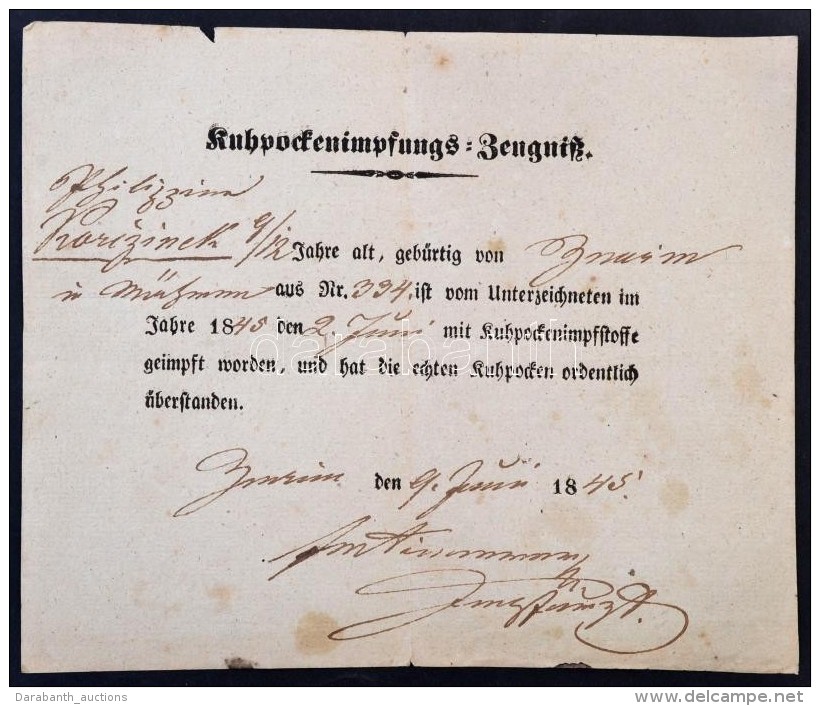 Kuhpockenimpfungs-Zeugniß.
Philippina
Korizinek 9/12 Jahre alt, gebürtig von Znaim
in Mähren aus Nr. 334, ist vom Unterzeichneten im
Jahre 1845 den 2. Juni mit Kuhpockenimpfstoffe
geimpft worden, und hat die echten Kuhpocken ordentlich
überstanden.
Znaim den 9. Juni 1845.
Impfarzt.
darabanth
Darabanth_auctions
www.delcampe.net